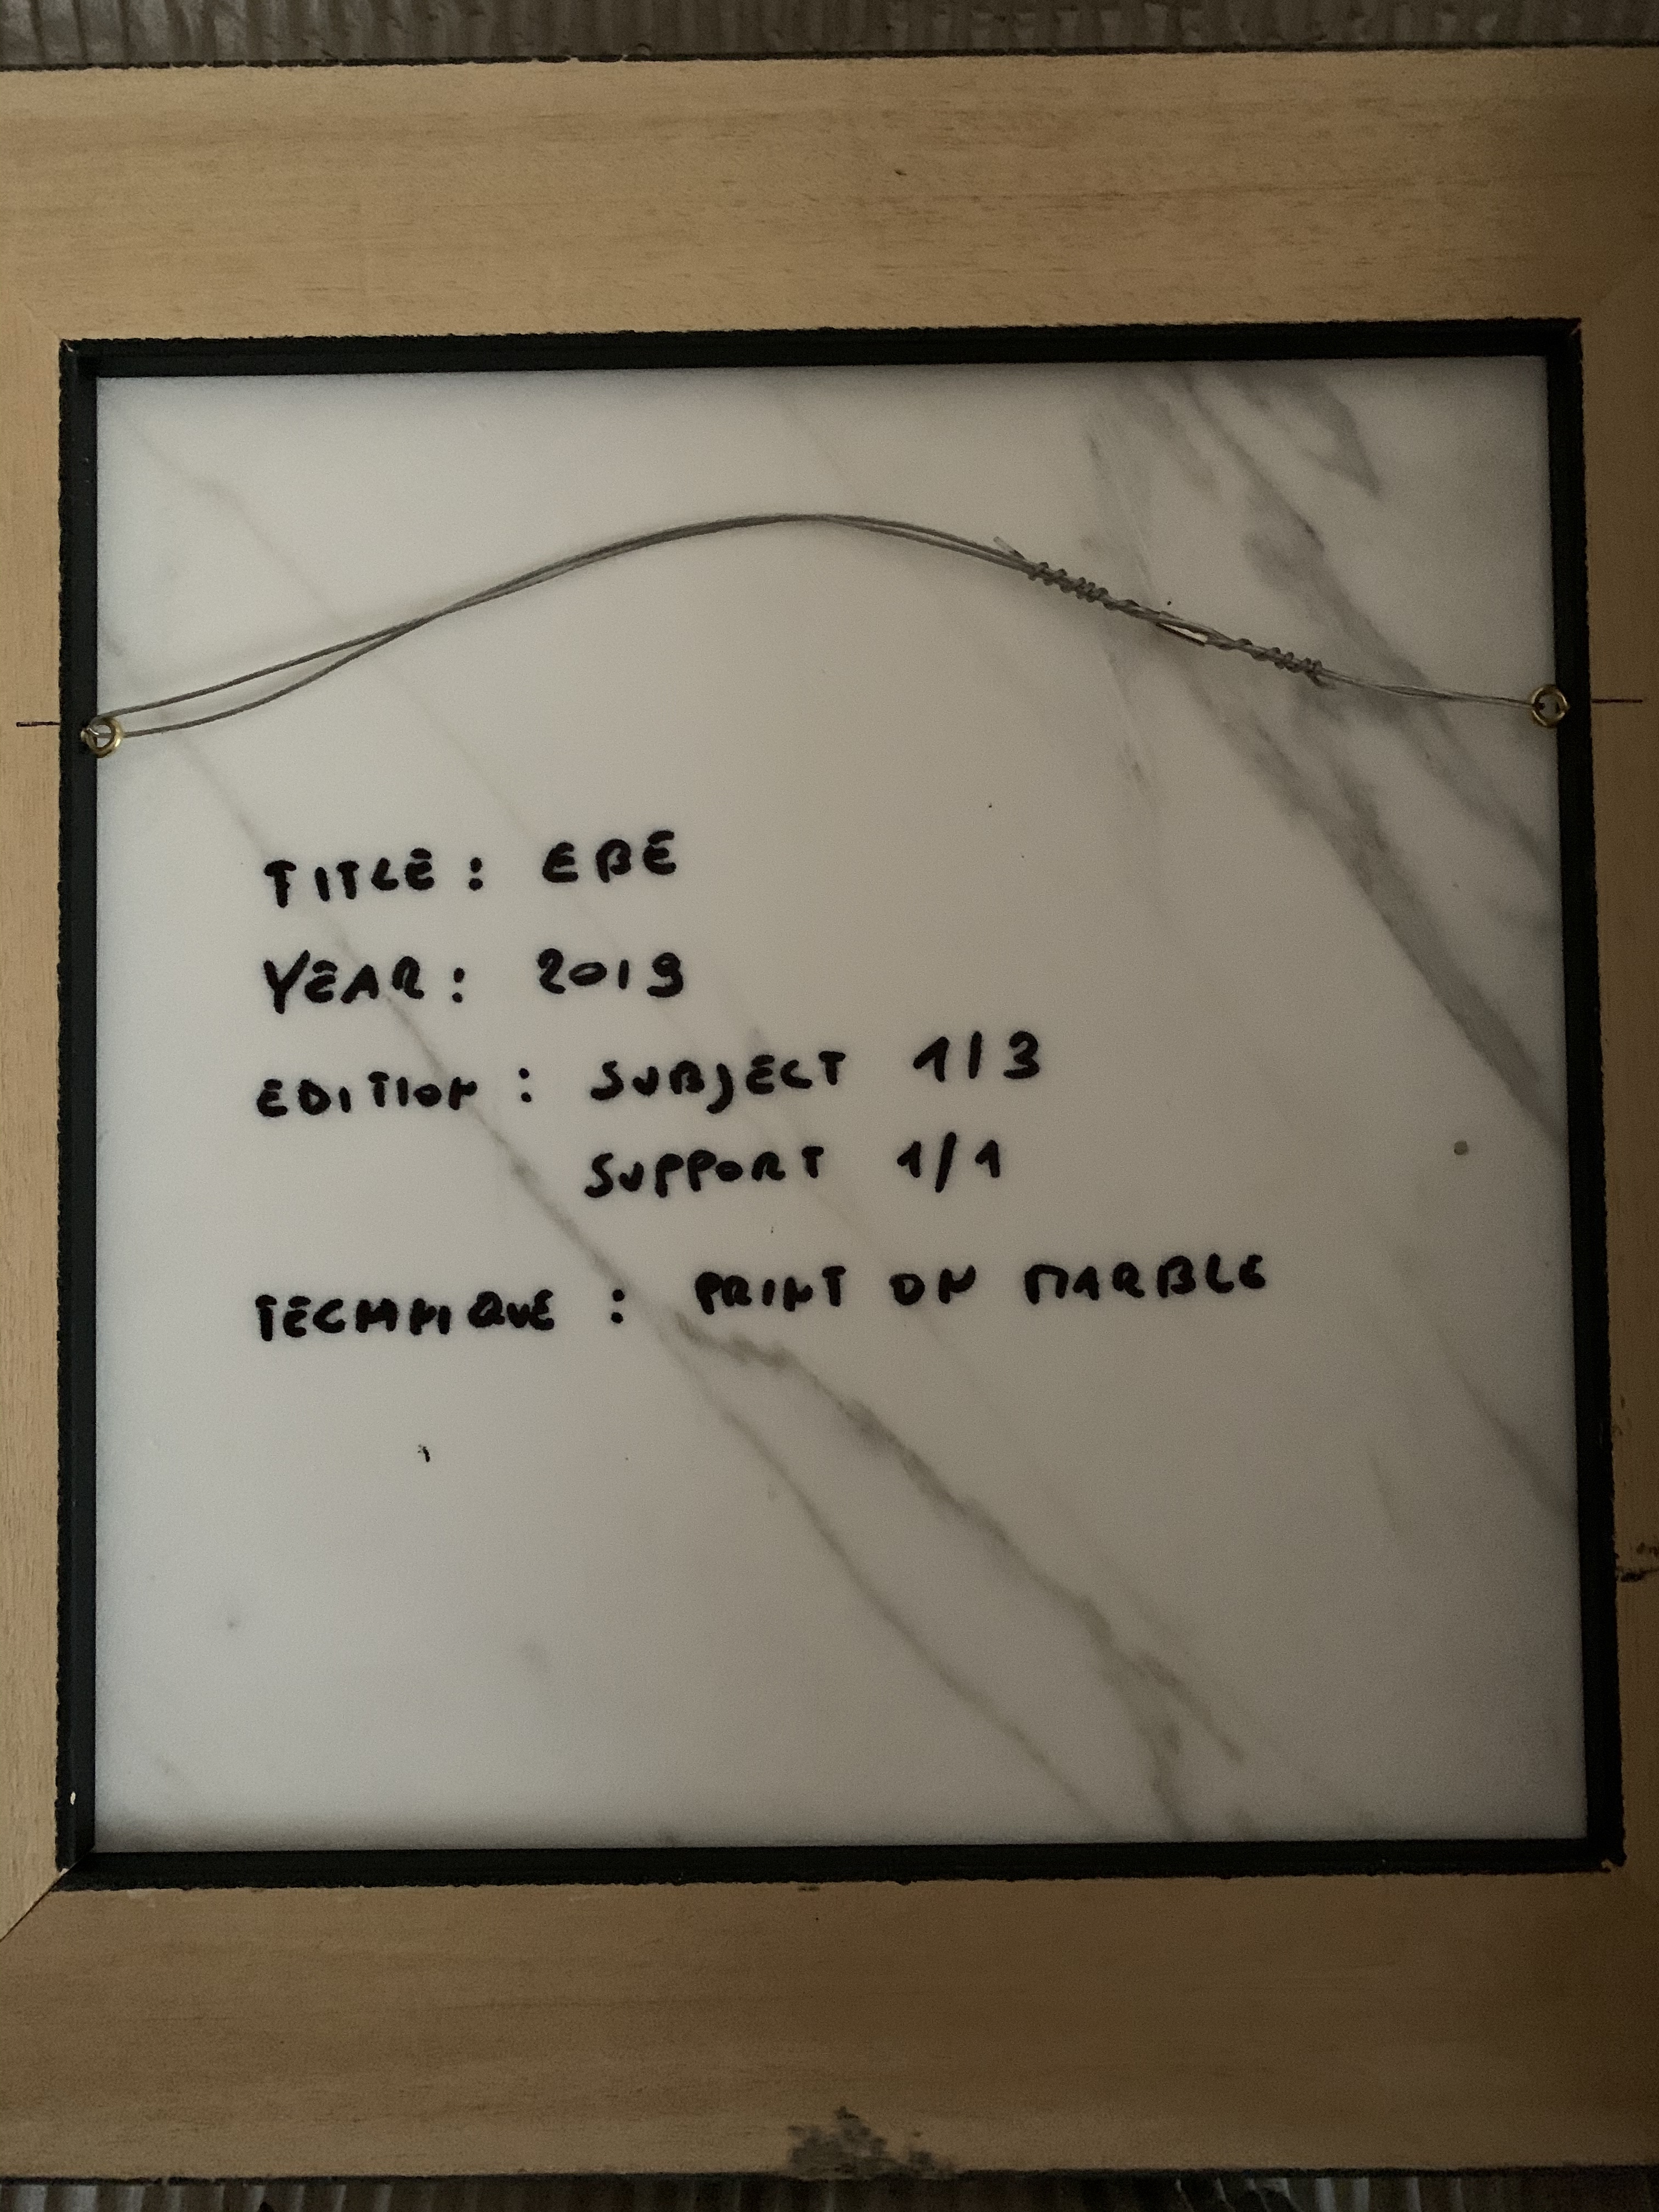 TITLE: EBE
YEAR: 2019
EDITION: SUBJECT 1/3
SUPPORT 1/1
TECHNIQUE: PRINT ON MARBLE